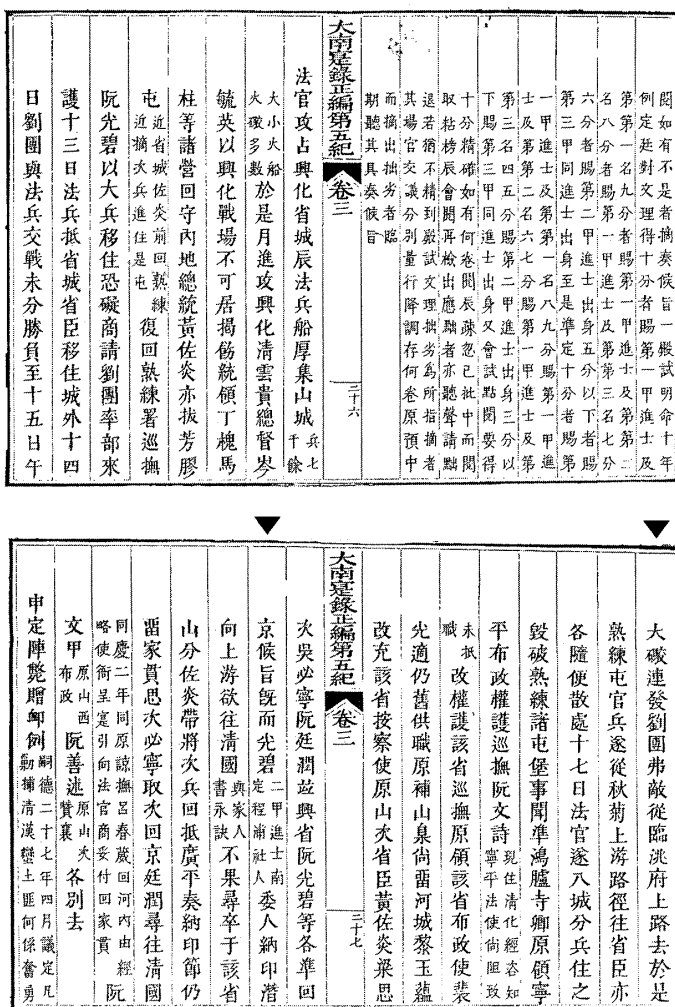 閱如有不是者摘奏候旨一殿試明命十年
例定廷對文理得十分者賜第一甲進士及
第第一名九分者賜第一甲進士及第第二
名八分者賜第一甲進士及第第三名七分
六分者賜第二甲進士出身五分以下者賜
第三甲同進士出身至是準定十分者賜第
一甲進士及第第一名八九分賜第一甲進
士及第第二名六七分賜第一甲進士及第
第三名四五分賜第二甲進士出身三分以
下賜第三甲同進士出身又會試點閱要得
十分精確如有何卷閱辰疎忽已批中而閱
取粘榜辰會閱再檢出應黜者亦聽聲請黜
退若猶不精到殿試文理拙劣為所指摘者
其場官交議分別量行降調存何卷原預中
而摘出拙劣者臨
期聽其具奏候旨
大南寔錄正編第五紀 卷三 三十六
法官攻占興化省城辰法兵船厚集山城兵七千餘
大小火船火礮多數於是月進攻興化清雲貴總督岑
毓英以興化戰場不可居揭飭統領丁槐馬
柱等諸營回守內地總統黃佐炎亦拔芳膠
屯近省城佐炎前回熟練近摘次兵進住是屯復回熟練署巡撫
阮光碧以大兵移住恐礙商請劉團率部來
護十三日法兵抵省城省臣移住城外十四
日劉團與法兵交戰未分勝負至十五日午
大礮連發劉團弗敵從臨洮府上路去於是
熟練屯官兵遂從秋菊上游路徑往省臣亦
各隨便散處十七日法官遂入城分兵住之
毀破熟練諸屯堡事聞準鴻臚寺卿原領寧
平布政權護巡撫阮文詩現住清化經咨知寧平法使尙阻政
未抵職改權護該省巡撫原領該省布政使裴
光適仍舊供職原補山泉尙留河城黎玉蘊
改充該省按察使原山次省臣黃佐炎梁思
大南寔錄正編第五紀 卷三 三十七
次吳必寧阮廷潤並興省阮光碧等各準回
京候旨旣而光碧二甲進士南定程浦社人委人納印潛
向上游欲往清國與家人書永訣不果尋卒于該省
山分佐炎帶將次兵回抵廣平奏納印節仍
留家貫思次必寧取次回京廷潤尋往清國
同慶二年同原諒撫呂春葳回河內由經略使衙呈寔引向法官商妥付回家貫阮
文甲原山西布政阮善述原山次贊襄各別去
申定陣斃贈卹例嗣德二十七年四月議定凡勦捕清漢蠻土匪何係奮勇